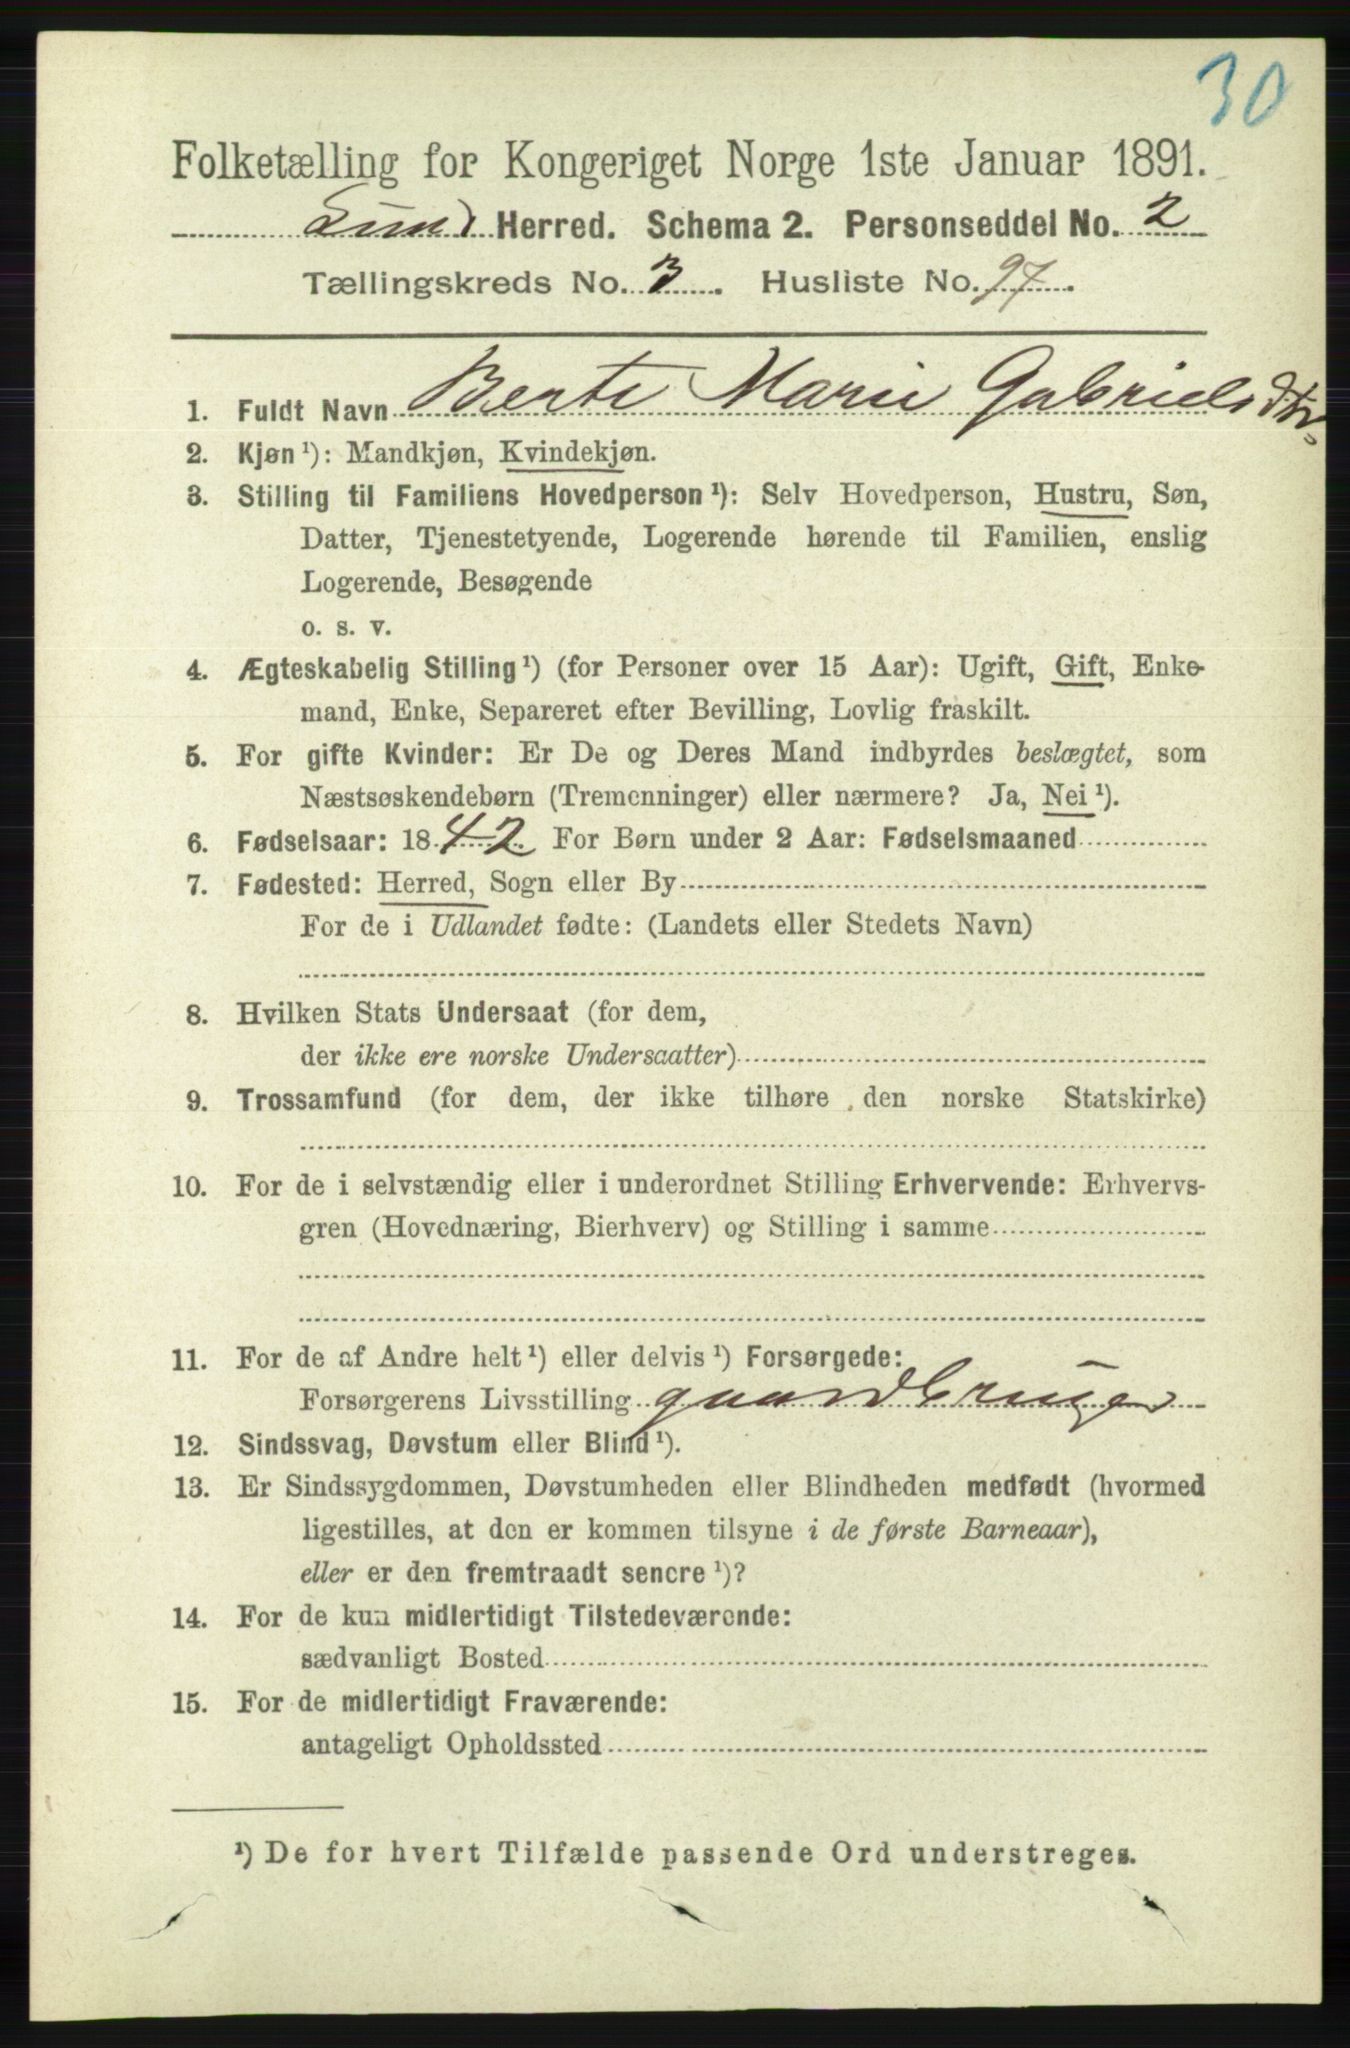 30
Folketælling for Kongeriget Norge 1ste Januar 1891.
Lund Herred. Schema 2. Personseddel No. 2
Tællingskreds No. 3. Husliste No. 97.
1. Fuldt Navn Berte Marie Gabrielsdtr.
2. Kjøn ¹): Mandkjøn, Kvindekjøn.
3. Stilling til Familiens Hovedperson ¹): Selv Hovedperson, Hustru, Søn,
Datter, Tjenestetyende, Logerende hørende til Familien, enslig
Logerende, Besøgende
o. s. v.
4. Ægteskabelig Stilling ¹) (for Personer over 15 Aar): Ugift, Gift, Enke-
mand, Enke, Separeret efter Bevilling, Lovlig fraskilt.
5. For gifte Kvinder: Er De og Deres Mand indbyrdes beslægtet, som
Næstsøskendebørn (Tremenninger) eller nærmere? Ja, Nei ¹).
6. Fødselsaar: 1842. For Børn under 2 Aar: Fødselsmaaned
7. Fødested: Herred, Sogn eller By
For de i Udlandet fødte: (Landets eller Stedets Navn)
8. Hvilken Stats Undersaat (for dem,
der ikke ere norske Undersaatter)
9. Trossamfund (for dem, der ikke tilhøre den norske Statskirke)
10. For de i selvstændig eller i underordnet Stilling Erhvervende: Erhvervs-
gren (Hovednæring, Bierhverv) og Stilling i samme
11. For de af Andre helt ¹) eller delvis ¹) Forsørgede:
Forsørgerens Livsstilling gaardbruger
12. Sindssvag, Døvstum eller Blind ¹).
13. Er Sindssygdommen, Døvstumheden eller Blindheden medfødt (hvormed
ligestilles, at den er kommen tilsyne i de første Barneaar),
eller er den fremtraadt senere ¹)?
14. For de kun midlertidigt Tilstedeværende:
sædvanligt Bosted
15. For de midlertidigt Fraværende:
antageligt Opholdssted
¹) De for hvert Tilfælde passende Ord understreges.